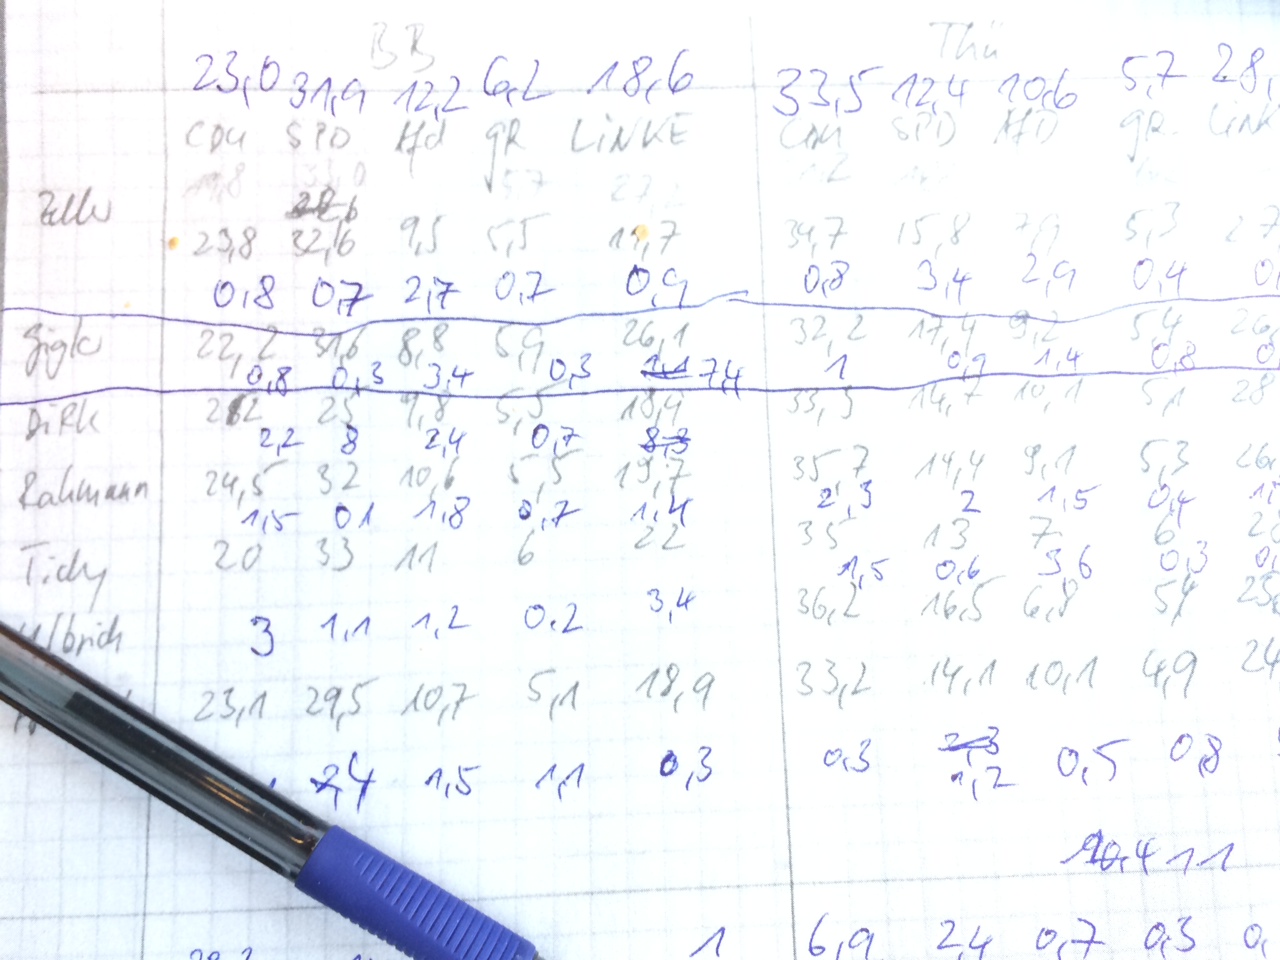 BB Thü
23,0 31,9 12,2 6,2 18,6 33,5 12,4 10,6 5,7 28,
CDU SPD Afd gR LINKE CDU SPD AfD gR. LINK
23,8 32,6 9,5 5,5 19,7 34,7 15,8 7,9 5,3 27
0,8 0,7 2,7 0,7 0,9 0,8 3,4 2,9 0,4 0,
22,2 31,6 8,8 5,9 26,1 32,2 17,4 9,2 5,4 26,
0,8 0,3 3,4 0,3 1,1 7,4 1 0,9 1,4 0,8 0
Dirk 23 9,8 5,5 18,9 33,3 14,7 10,1 5,1 28
2,2 8 2,4 0,7 8,3
Rahmann 24,5 32 10,6 5,5 19,7 35,7 14,4 9,1 5,3 26,
1,5 01 1,8 0,7 1,4 2,3 2 1,5 0,4 1,
Tichy 20 33 11 6 22 35 13 7 6
1,5 0,6 3,6 0,3 0,
3 1,1 1,2 0,2 3,4 36,2 16,5 6,8
23,1 29,5 10,7 5,1 18,9 33,2 14,1 10,1 4,9 24
2,4 1,5 1,1 0,3 0,3 2,3 0,5 0,8
1,2
10,4 11
1 6,9 2,4 0,7 0,3 0,